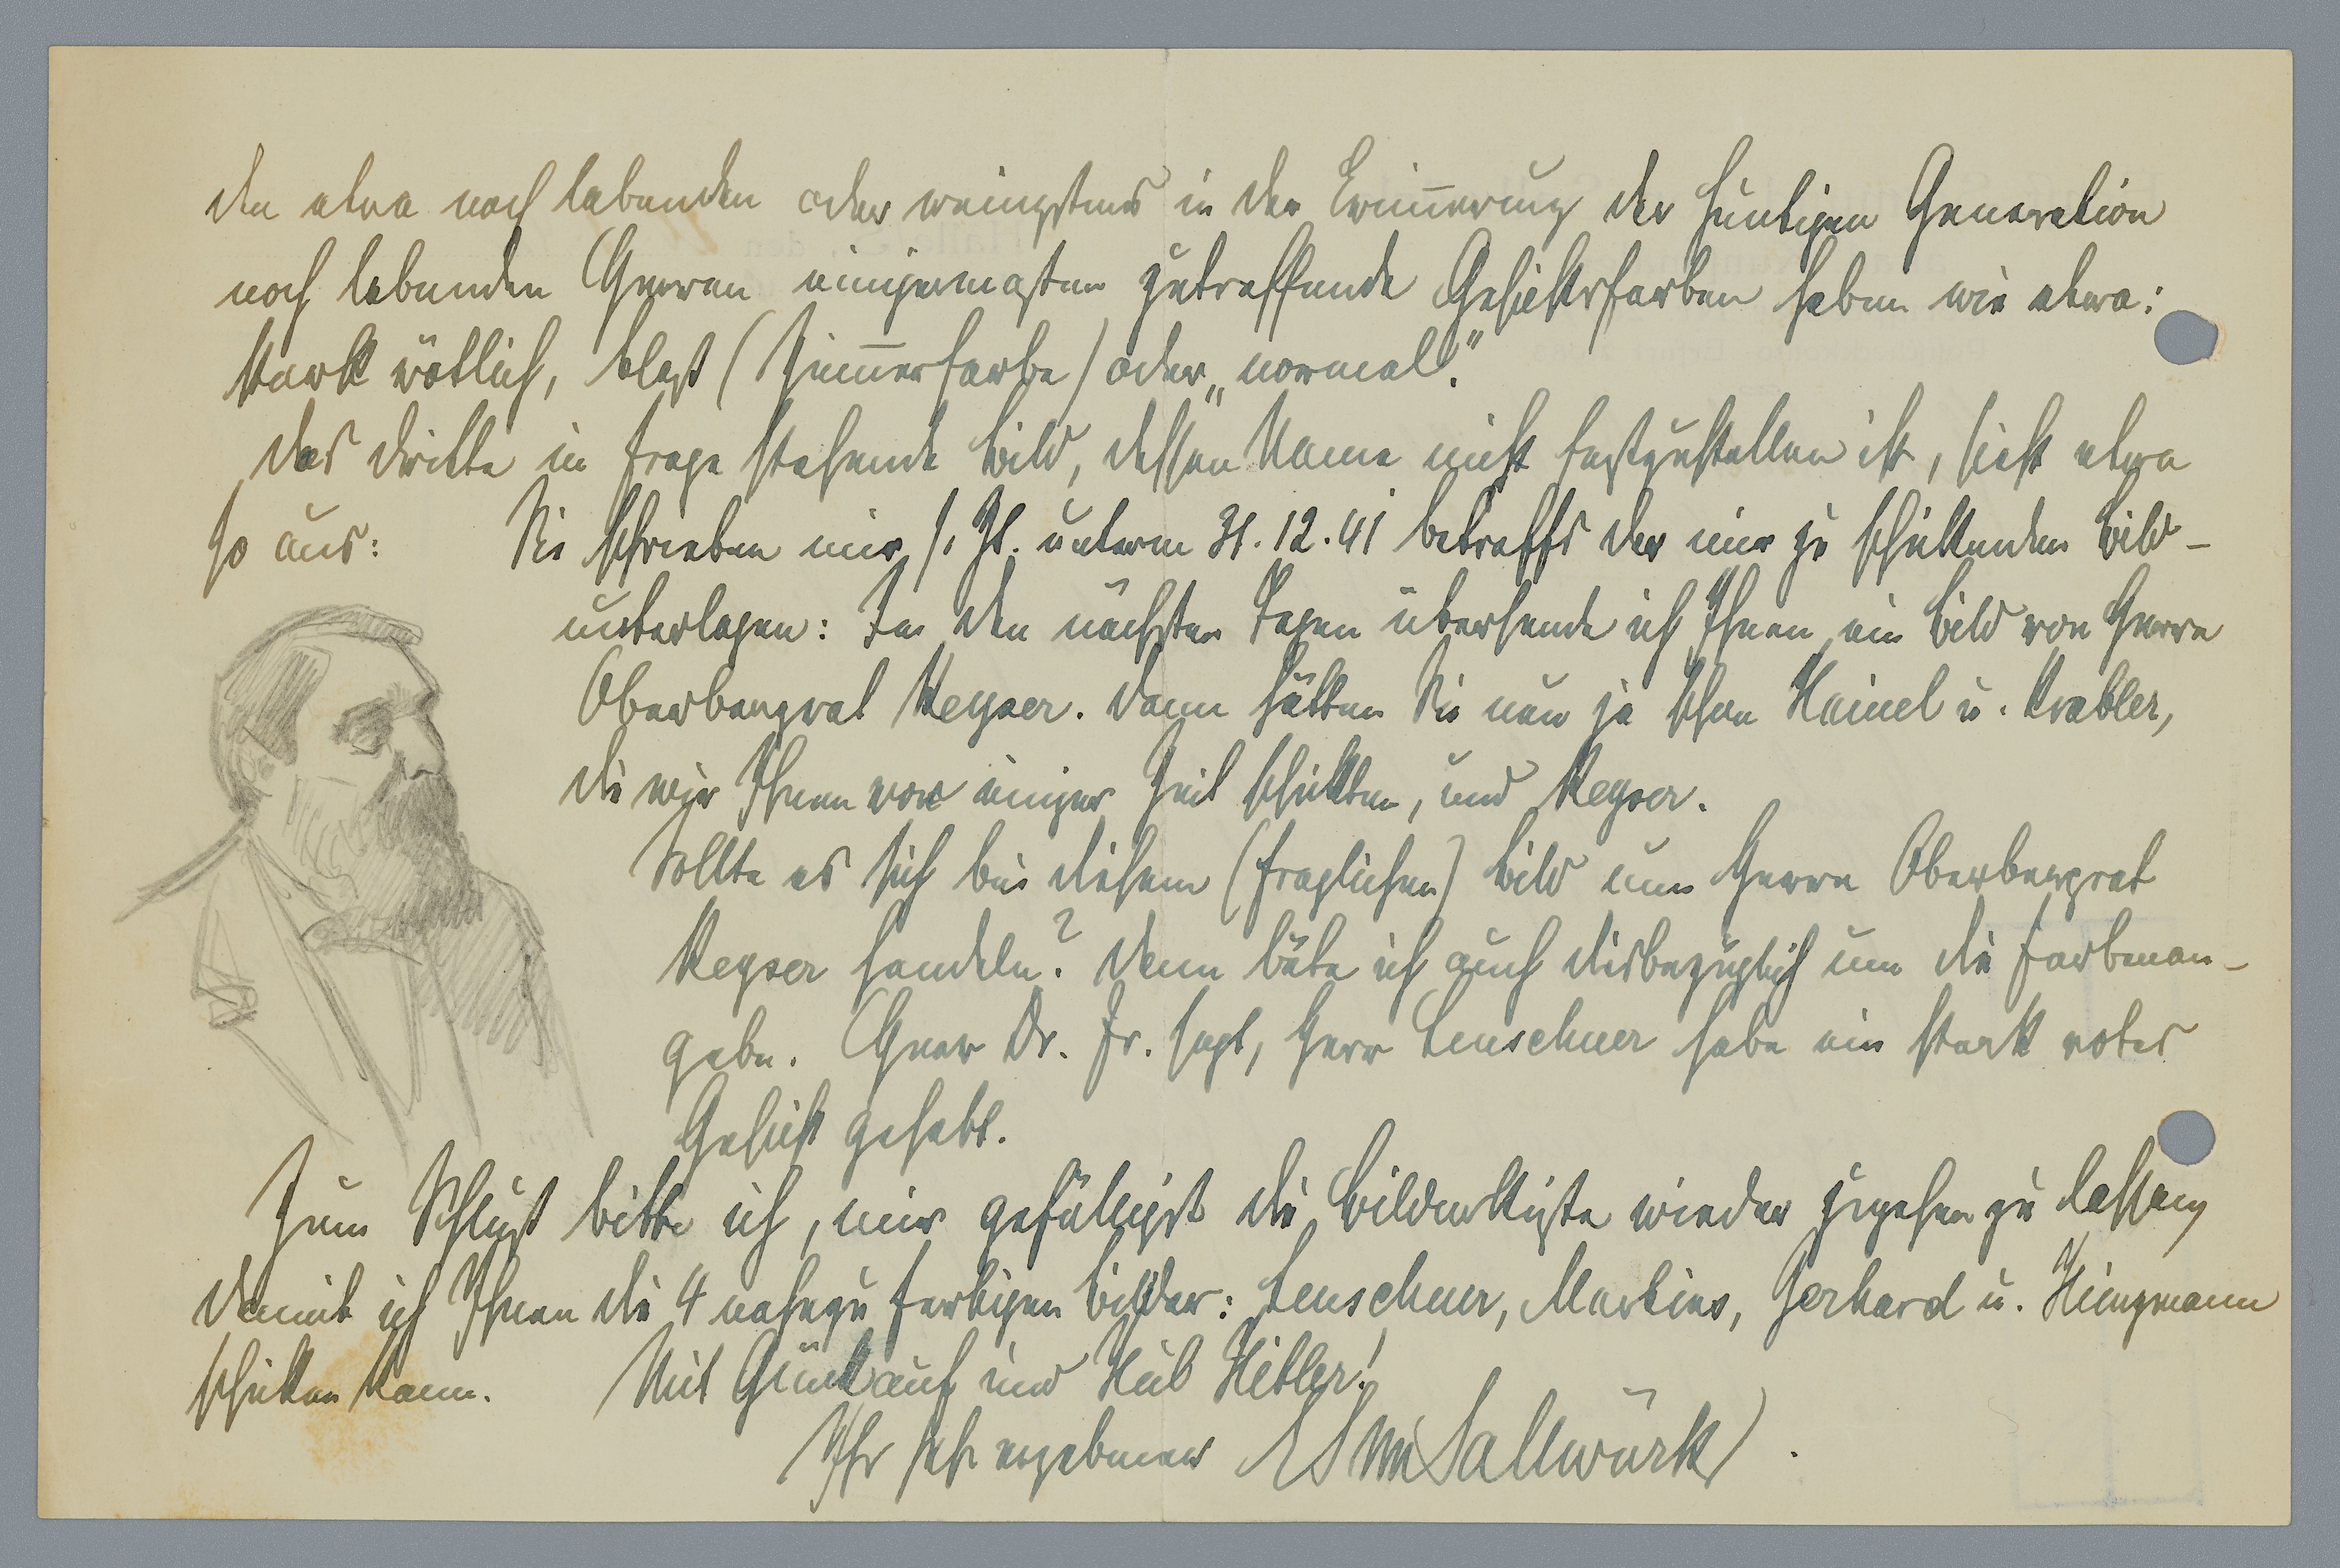 die etwa noch lebenden oder wenigstens in der Erinnerung der heutigen Generation
noch lebenden Herren einigermaßen zutreffende Gesichtsfarben haben wie etwa:
stark rötlich, blaß (Zimmerfarbe) oder „normal“.
Das dritte in Frage stehende Bild, dessen Name nicht festzustellen ist, sieht etwa
so aus: Sie schrieben mir s. Zt. unterm 31.12.41 betreffs der mir zu schickenden Bild-
unterlagen: In den nächsten Tagen übersende ich Ihnen ein Bild von Herrn
Oberbergrat Keyser. Dann hätten Sie nun ja schon Heinel u. Krabler,
die wir Ihnen vor einiger Zeit schickten, und Keyser.
Sollte es sich bei diesem (fraglichen) Bild um Herrn Oberbergrat
Keyser handeln? Dann bäte ich auch diesbezüglich um die Farbenan-
gabe. Herr Dr. Fr. sagt, Herr Leuschner habe ein stark rotes
Gesicht gehabt.
Zum Schluß bitte ich, mir gefälligst die Bilderkiste wieder zugehen zu lassen,
damit ich Ihnen die 4 nahezu fertigen Bilder: Leuschner, Martins, Gerhard u. Heingmann
schicken kann. Mit Glückauf und Heil Hitler!
Ihr sehr ergebener ESvSallwürk.